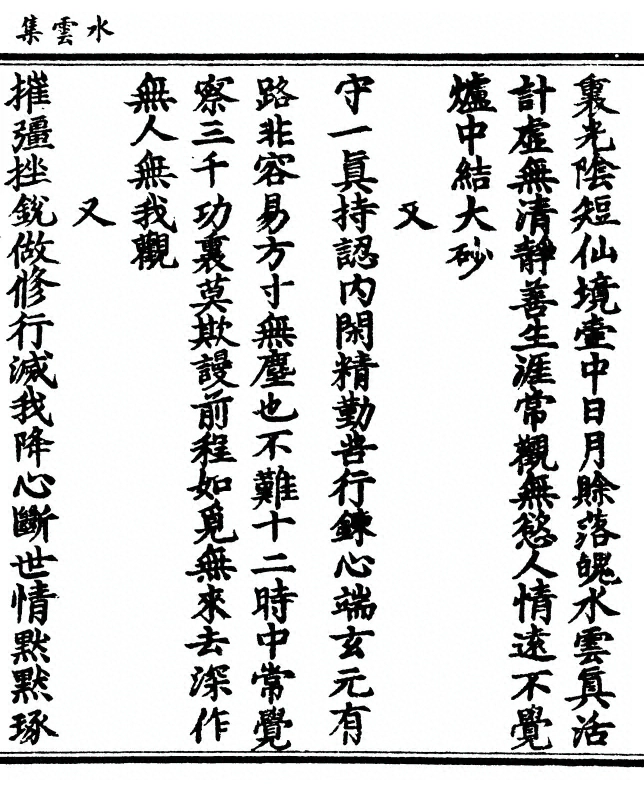 水雲集
裏光陰短仙境壼中日月賒落魄水雲眞活
計虛無清靜善生涯常觀無慾人情遠不覺
爐中結大砂
又
守一眞持認内閑精勤苦行鍊心端玄元有
路非容易方寸無塵也不難十二時中常覺
察三千功裏莫欺謾前程如覓無來去深作
無人無我觀
又
摧彊挫銳做修行滅我降心斷世情默默琢